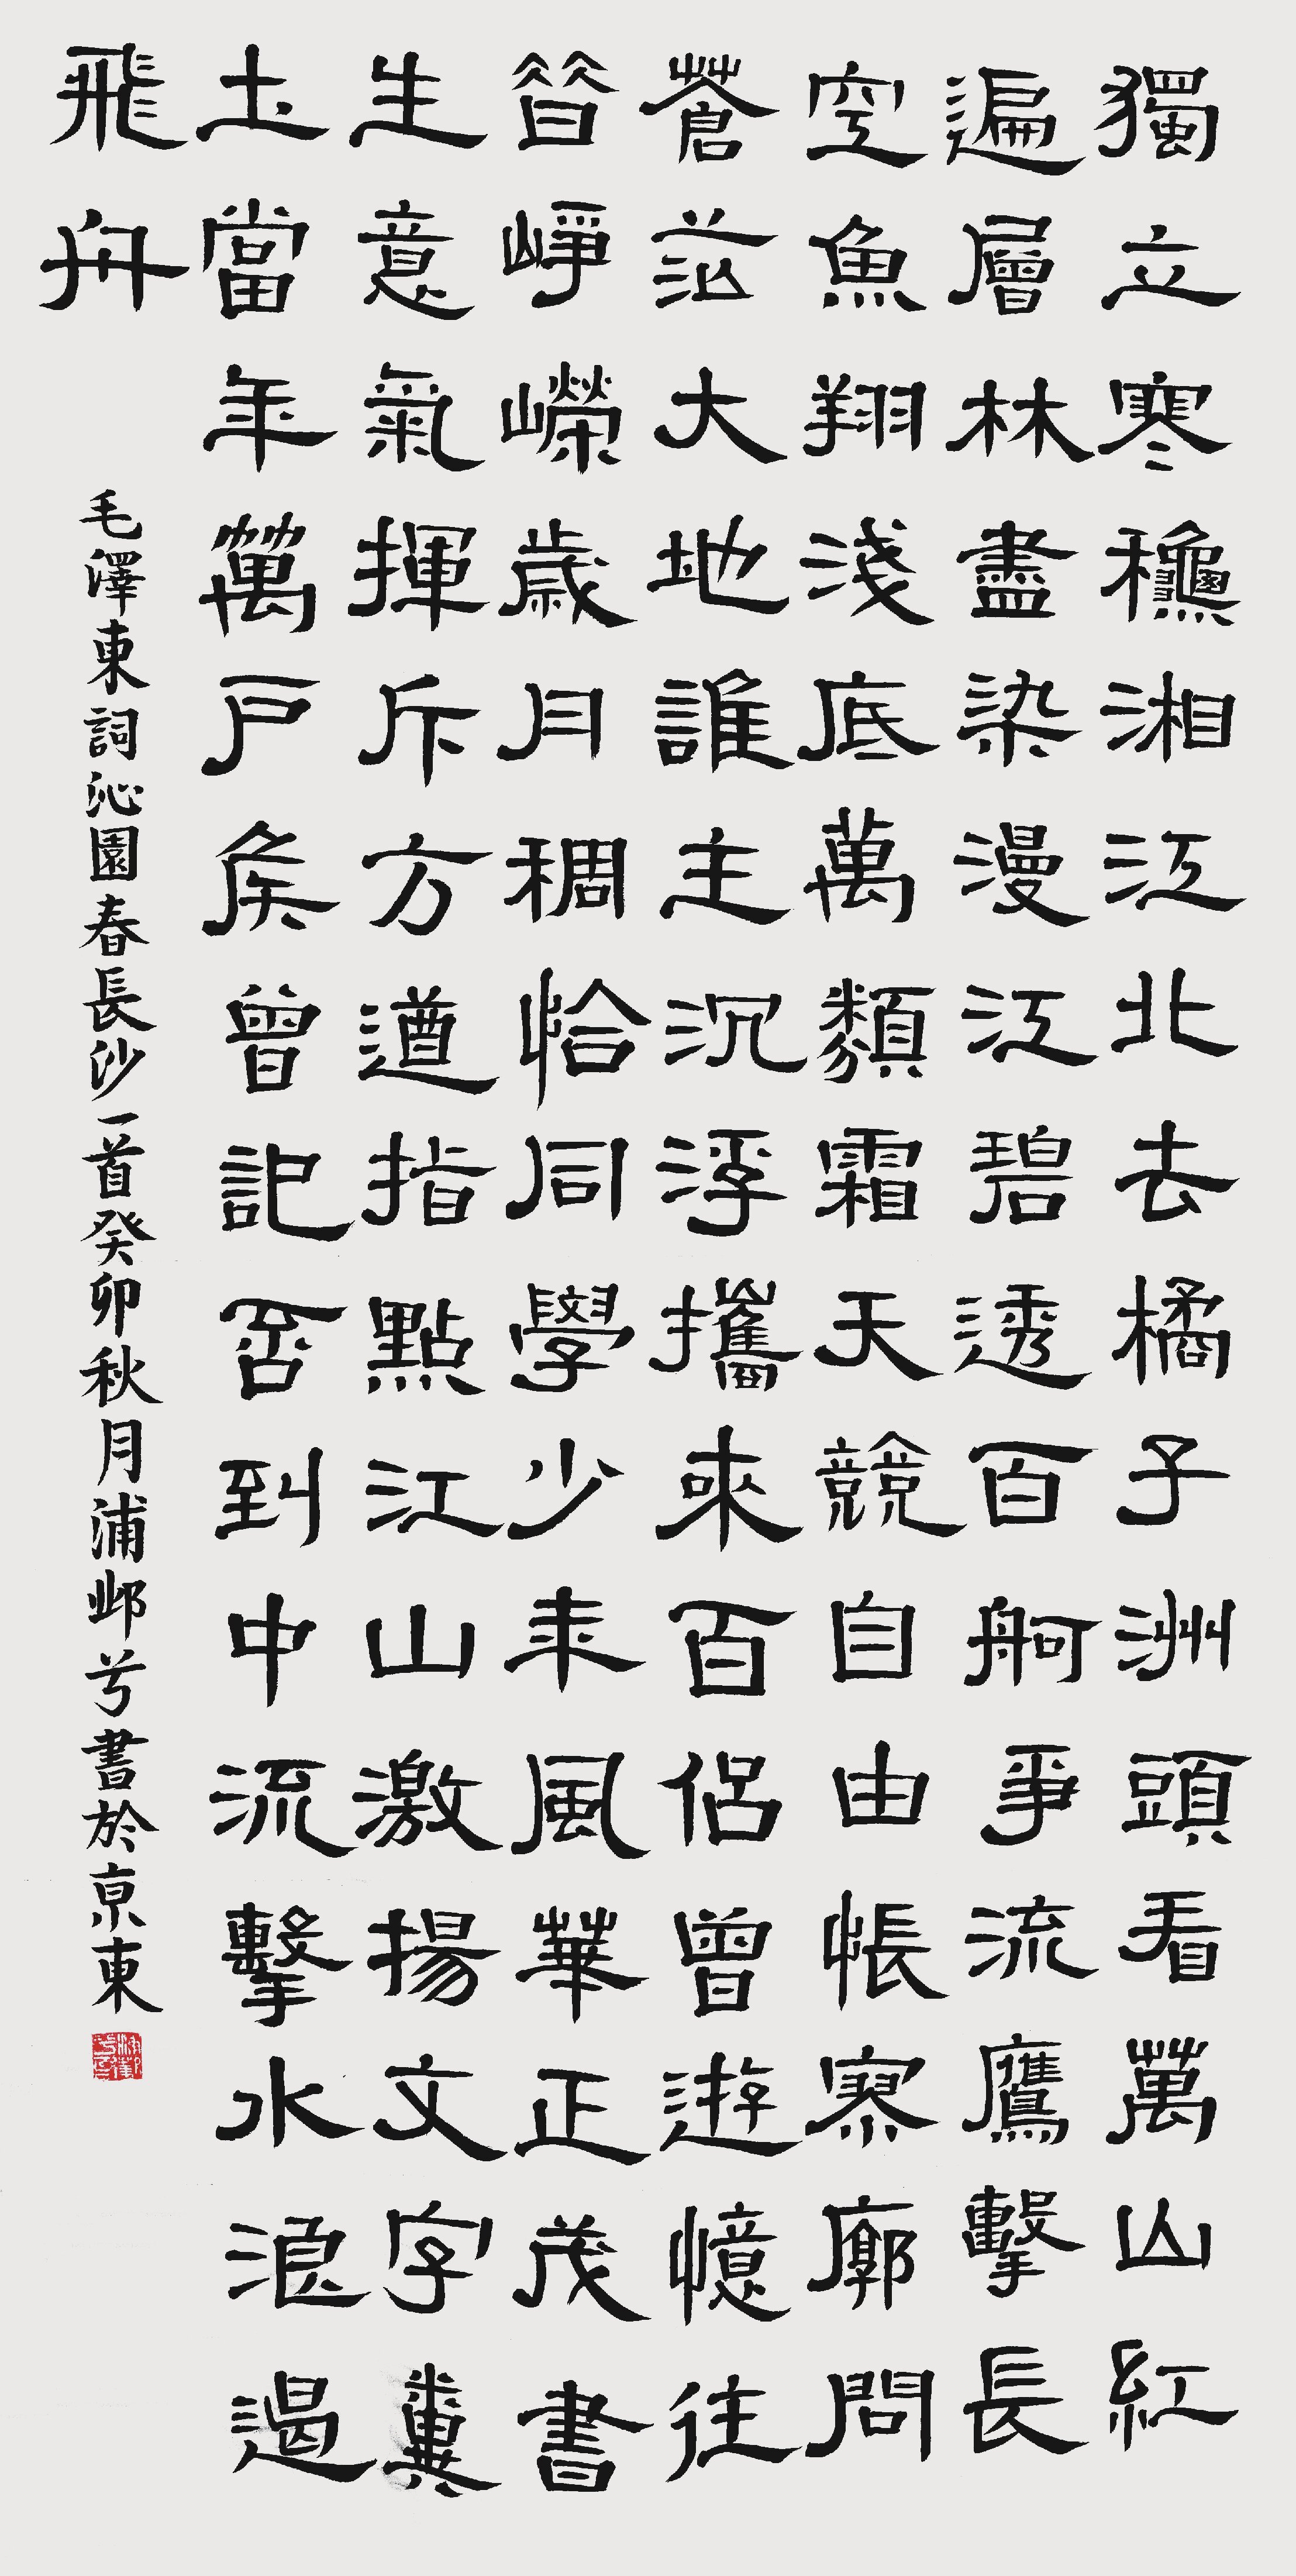 獨立寒龝湘江北去橘子洲頭看萬山紅
遍層林盡染漫江碧透百舸爭流鷹擊長
空魚翔淺底萬類霜天競自由帳寥廓問
蒼茫大地誰主沉浮攜來百侶曾遊憶往
昔崢嶸歲月稠恰同學少年風華正茂書
生意氣揮斥方遒指點江山激揚文字糞
土當年萬戶矦曾記否到中流擊水浪遏
飛舟
毛澤東詞沁園春長沙一首癸卯秋月浦邺兮書於亰東